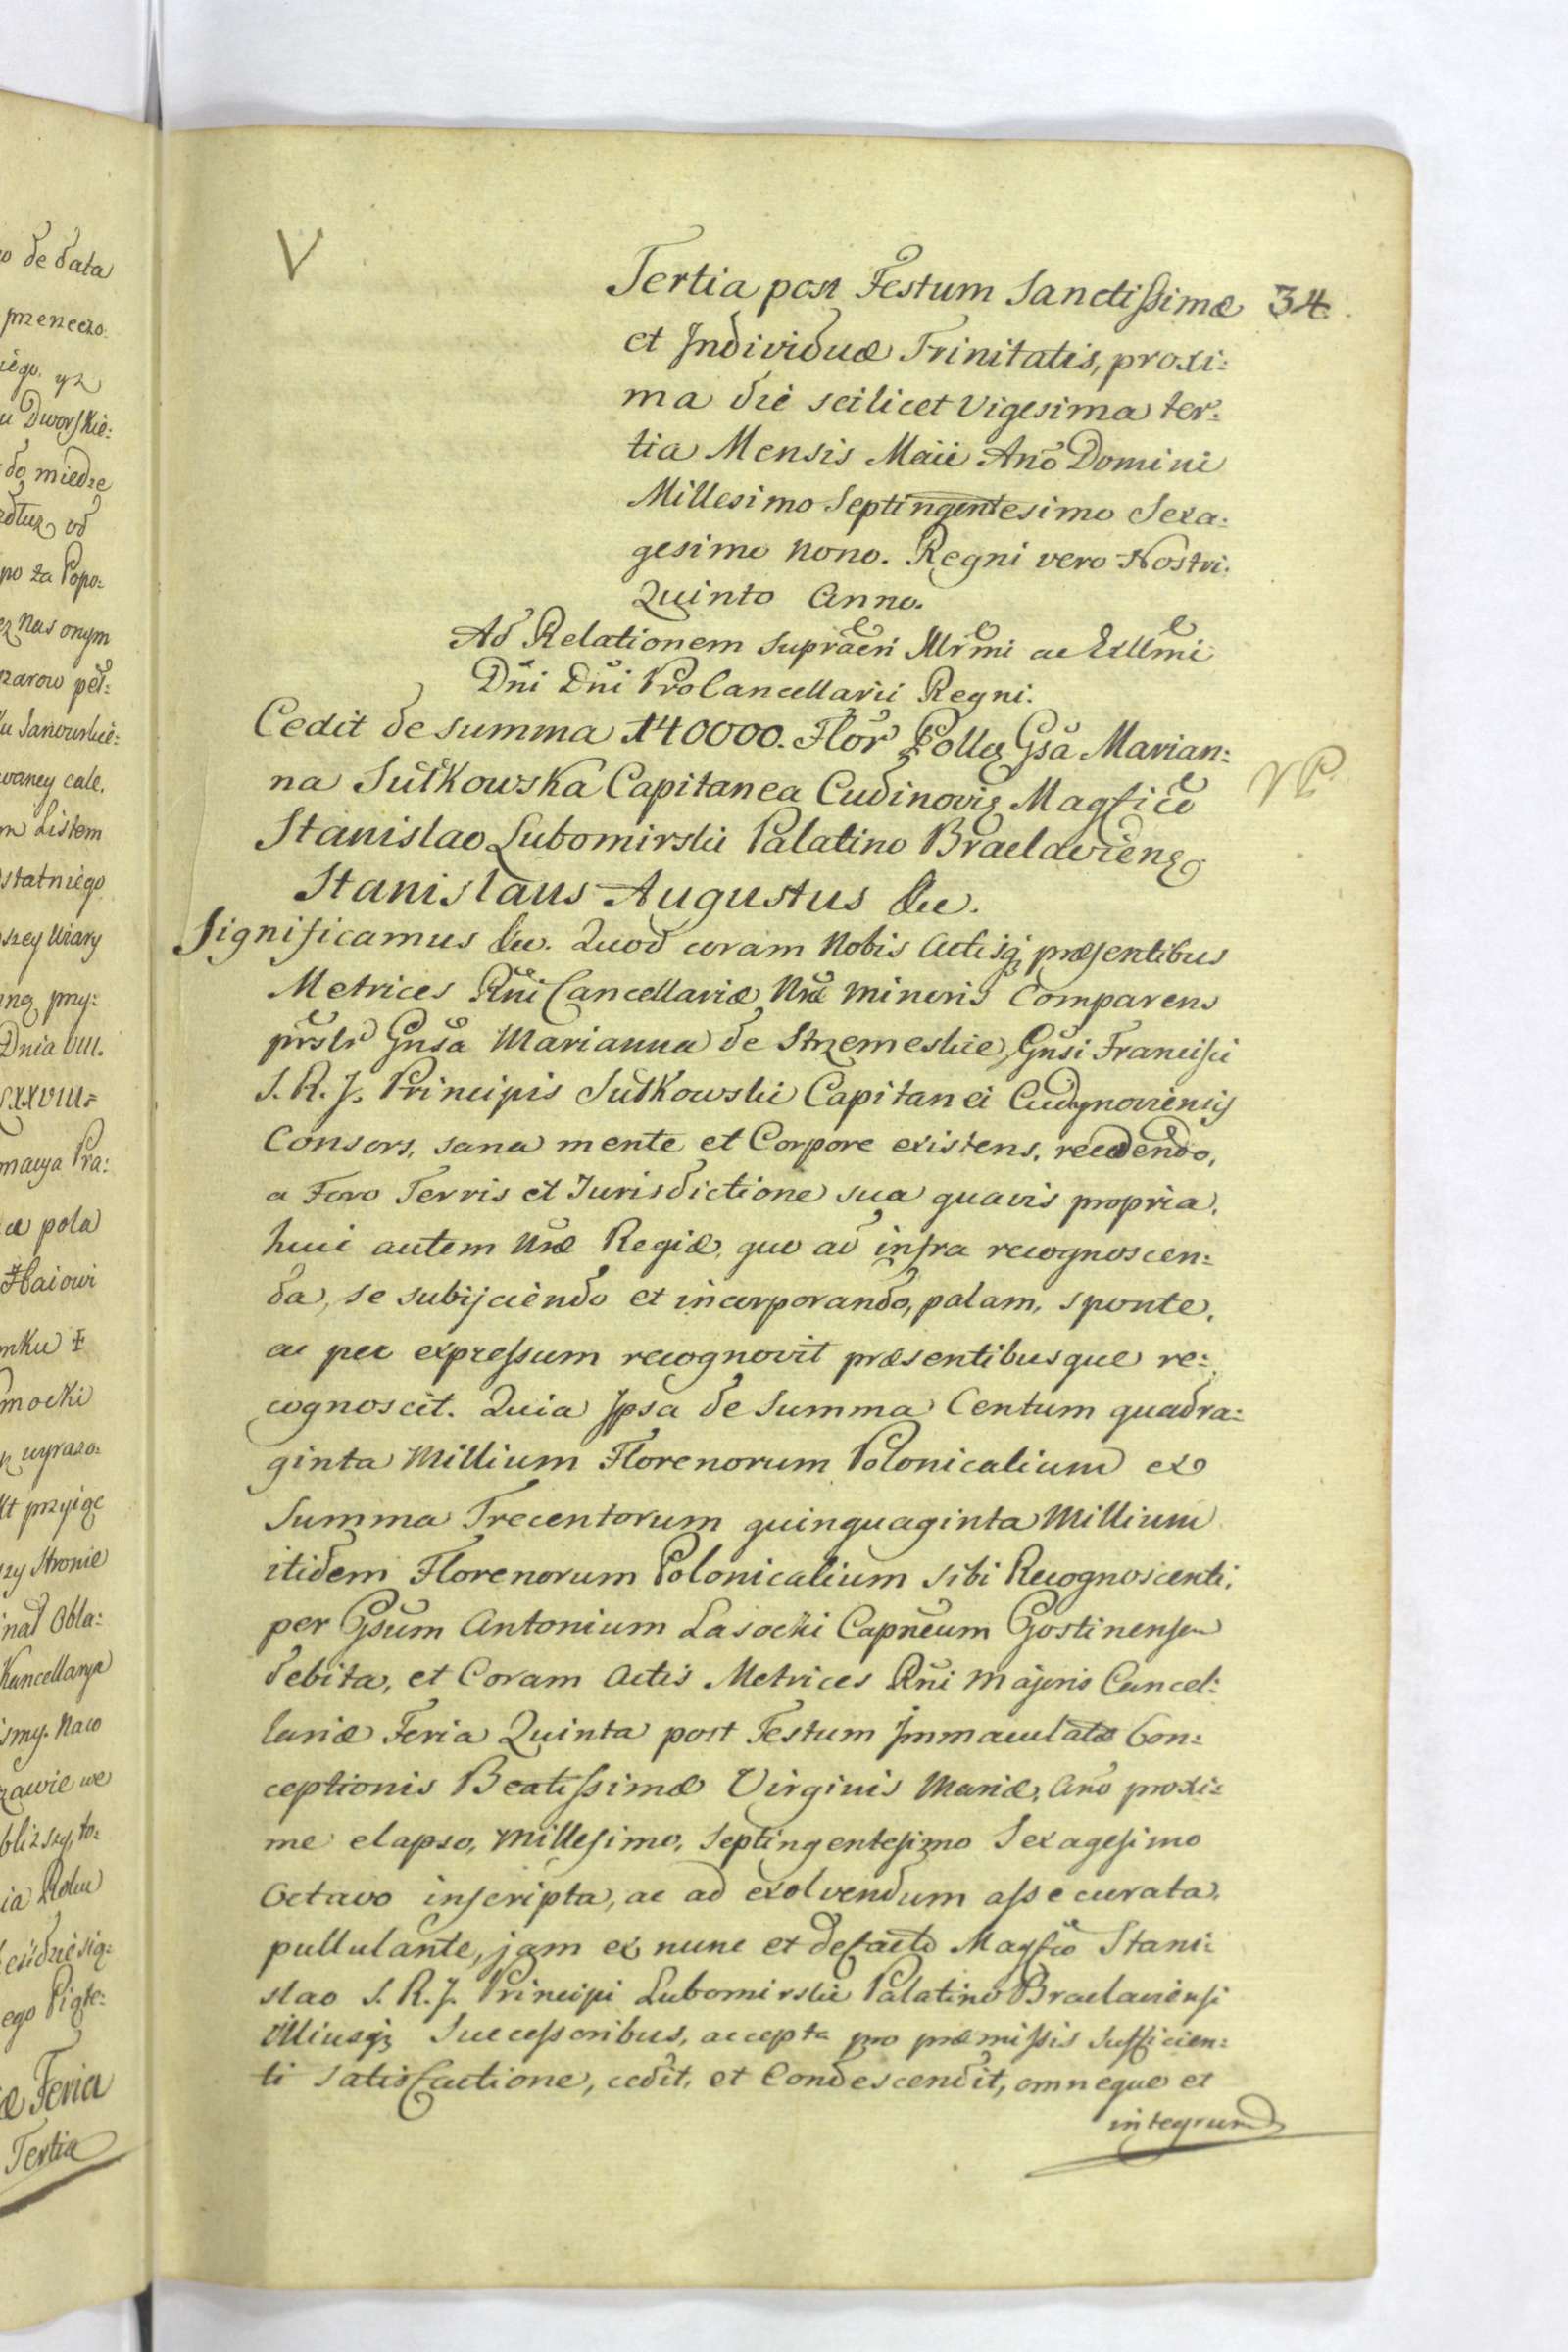 o de data
przeneczo.
iego. yz
u Dworskie:
do miedze
wdłuz od
po za Popo:
ez Nas onym
zarow peł:
waney cale.
m Listem
statniego
szey Wiary
Dnia VIII.
LXXVIII=
macya Pra:
ce pola
mku
mocki
wyrazo:
kt przyięc
szy Stronie
inal Obla:
Kancellarya
ismy. Naco
zawie we
bliższey, to:
ego Piąte:
æ Feria
Tertia
V
Tertia post Festum Sanctissimæ 34.
et Individuæ Trinitatis, proxi:
ma die scilicet Vigesima ter:
tia Mensis Maii Anõ Domini
Millesimo Septingentesimo Sexa:
gesimo Nono. Regni vero Nostri.
Quinto Anno.
Ad Relationem supraẽn Illrmi ac Exllmi
Dñi Dñi ProCancellarii Regni.
Cedit de summa 140000. Flor Pollq Gsã Marian:
na Sułkowska Capitanea Cudinovię Magfico
Stanislao Lubomirski Palatino Braclavienę
Stanislaus Augustus &c.
Significamus &c. Quod coram Nobis Actisq præsentibus
Metrices Rñi Cancellariæ Nræ Minoris Comparens
prslr Gnsa Marianna de Strzemeskie, Gnsi Francisci
S. R. J. Principis Sułkowski Capitanei Cudynoviensis
Consors, sana mente et Corpore existens, recedendo,
a Foro Terris et Jurisdictione sua quavis propria,
huic autem Nræ Regiæ, quo ad infra recognoscen:
da, se subijciendo et incorporando, palam, sponte,
ac per expressum recognovit præsentibusque re:
cognoscit. Quia Jpsa de Summa Centum quadra:
ginta Millium Florenorum Polonicalium ex
Summa Trecentorum quinquaginta Millium
itidem Florenorum Polonicalium sibi Recognoscenti,
per Gsum Antonium Lasocki Capneum Gostinensem
debita, et Coram Actis Metrices Rñi Majoris Cancel:
lariæ Feria Quinta post Festum Jmmaculatæ Con:
ceptionis Beatissimæ Virginis Mariæ, Anõ proxi:
me elapso, Millesimo, Septingentesimo Sexagesimo
Octavo inscripta, ac ad exolvendum assecurata,
pullulante, jam ex nunc et defacto Magfco Stani:
slao S. R. J. Principi Lubomirski Palatino Braclaviensi
Illiusq Successoribus, accepta pro præmissis sufficien:
ti satisfactione, cedit, et Condescendit, omneque et
integrum